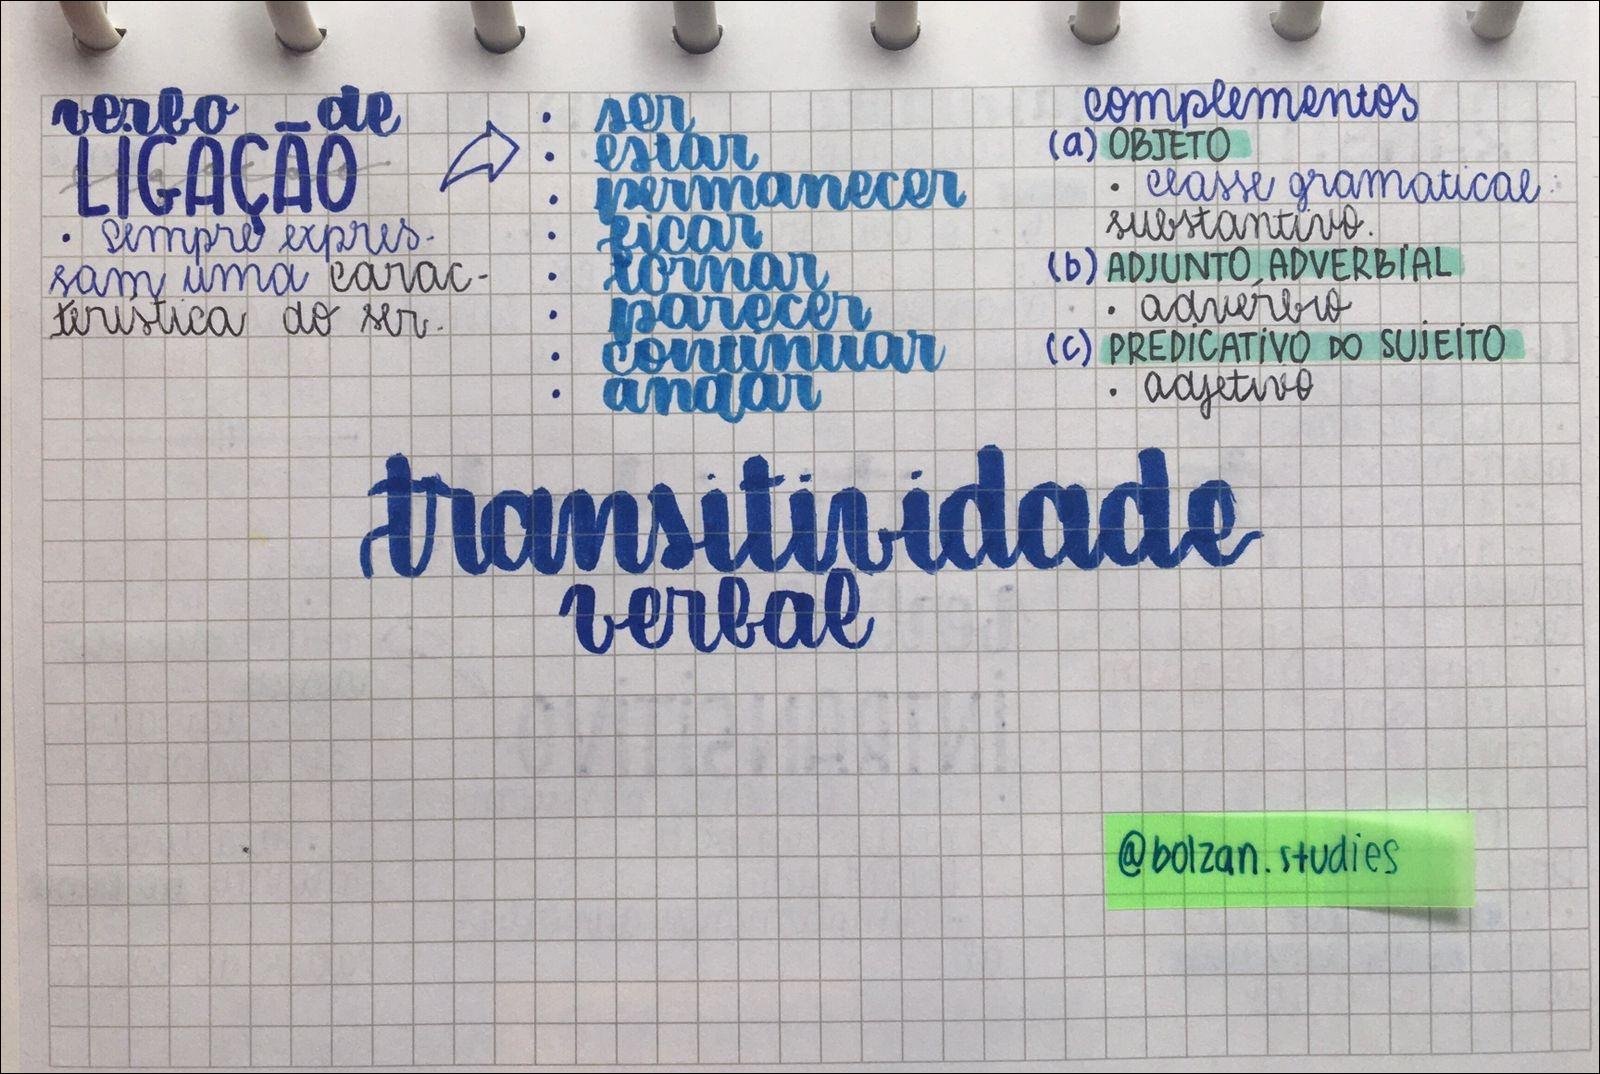 verbo de
LIGAÇÃO
• sempre expres-
sam uma carac-
terística do ser.
• ser
• estar
• permanecer
• ficar
• tornar
• parecer
• continuar
• andar
complementos
(a) OBJETO
• classe gramatical:
substantivo.
(b) ADJUNTO ADVERBIAL
• advérbio
(c) PREDICATIVO DO SUJEITO
• adjetivo
transitividade
verbal
INTRANSITIVO
@bolzan.studies